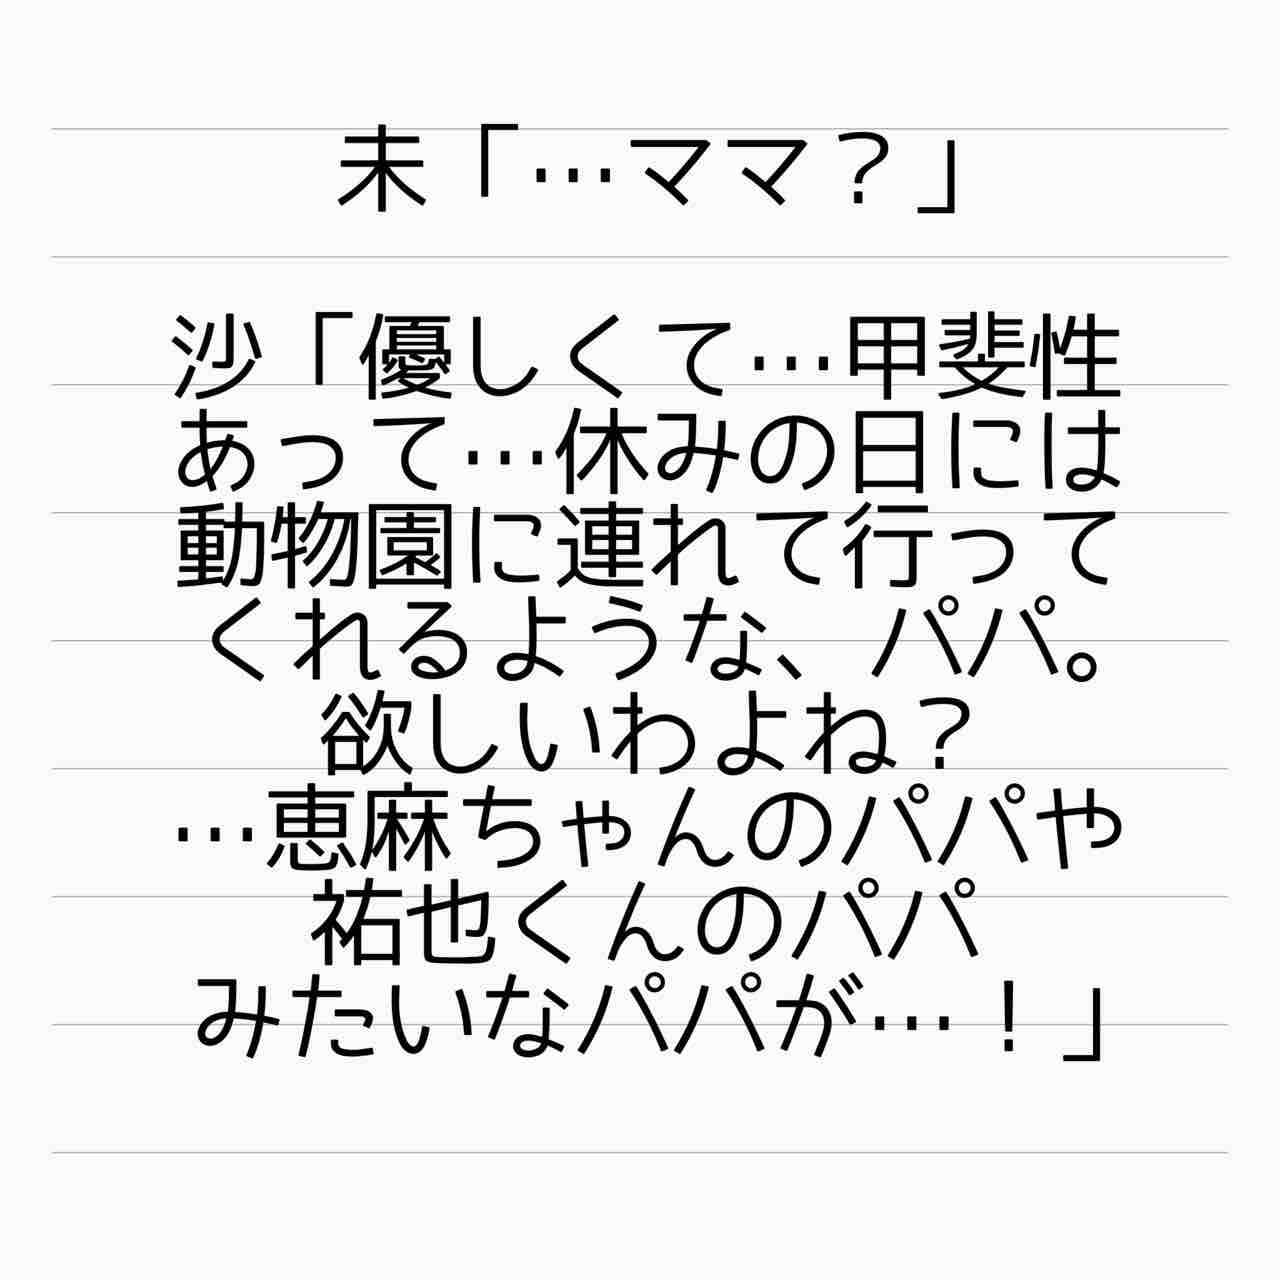 未「…ママ？」
沙「優しくて…甲斐性
あって…休みの日には
動物園に連れて行って
くれるような、パパ。
欲しいわよね？
…恵麻ちゃんのパパや
祐也くんのパパ
みたいなパパが…！」